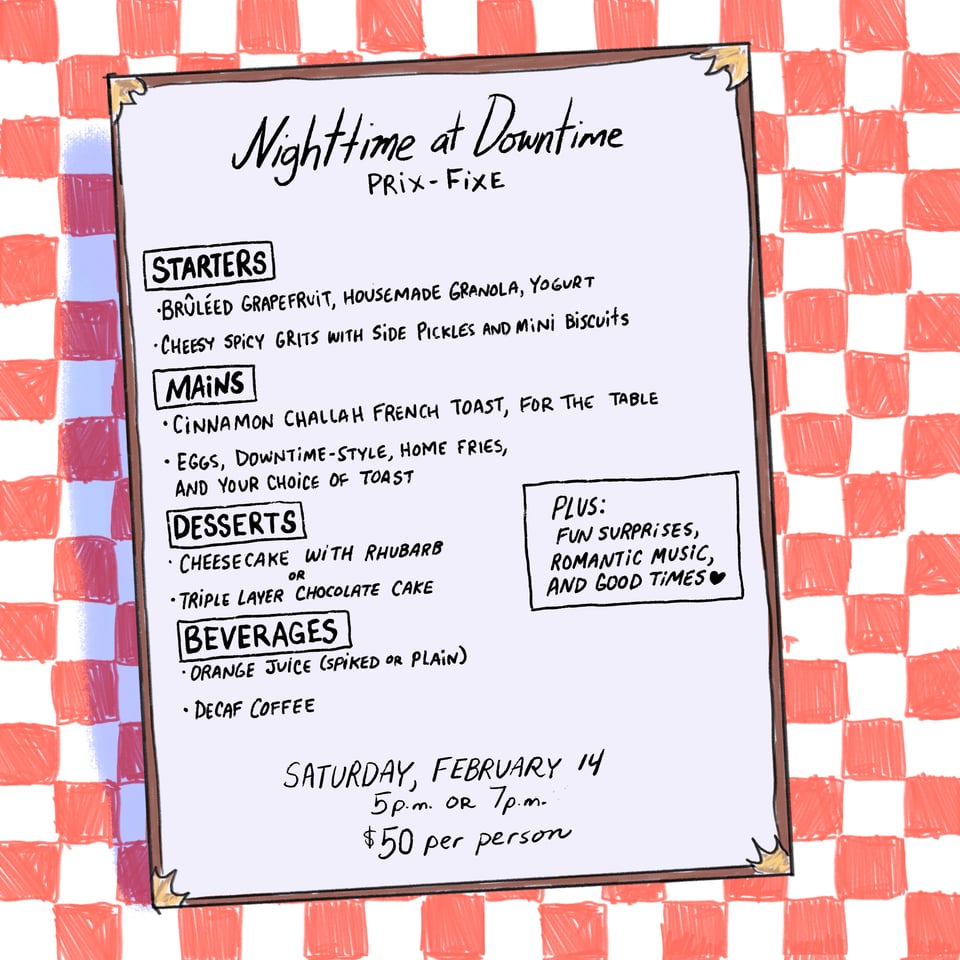 Nighttime at Downtime
PRiX-FiXE
STARTERS
·BRÛLÉED GRAPEFRUIT, HOUSEMADE GRANOLA, YOGURT
·CHEESY SPICY GRITS WITH SIDE PICKLES AND MINI BISCUITS
MAINS
·CINNAMON CHALLAH FRENCH TOAST, FOR THE TABLE
·EGGS, DOWNTIME-STYLE, HOME FRIES,
AND YOUR CHOICE OF TOAST
DESSERTS
·CHEESECAKE WITH RHUBARB
OR
·TRIPLE LAYER CHOCOLATE CAKE
PLUS:
FUN SURPRISES,
ROMANTIC MUSIC,
AND GOOD TIMES♥
BEVERAGES
·ORANGE JUICE (SPIKED OR PLAIN)
·DECAF COFFEE
SATURDAY, FEBRUARY 14
5p.m. OR 7p.m.
$50 per person